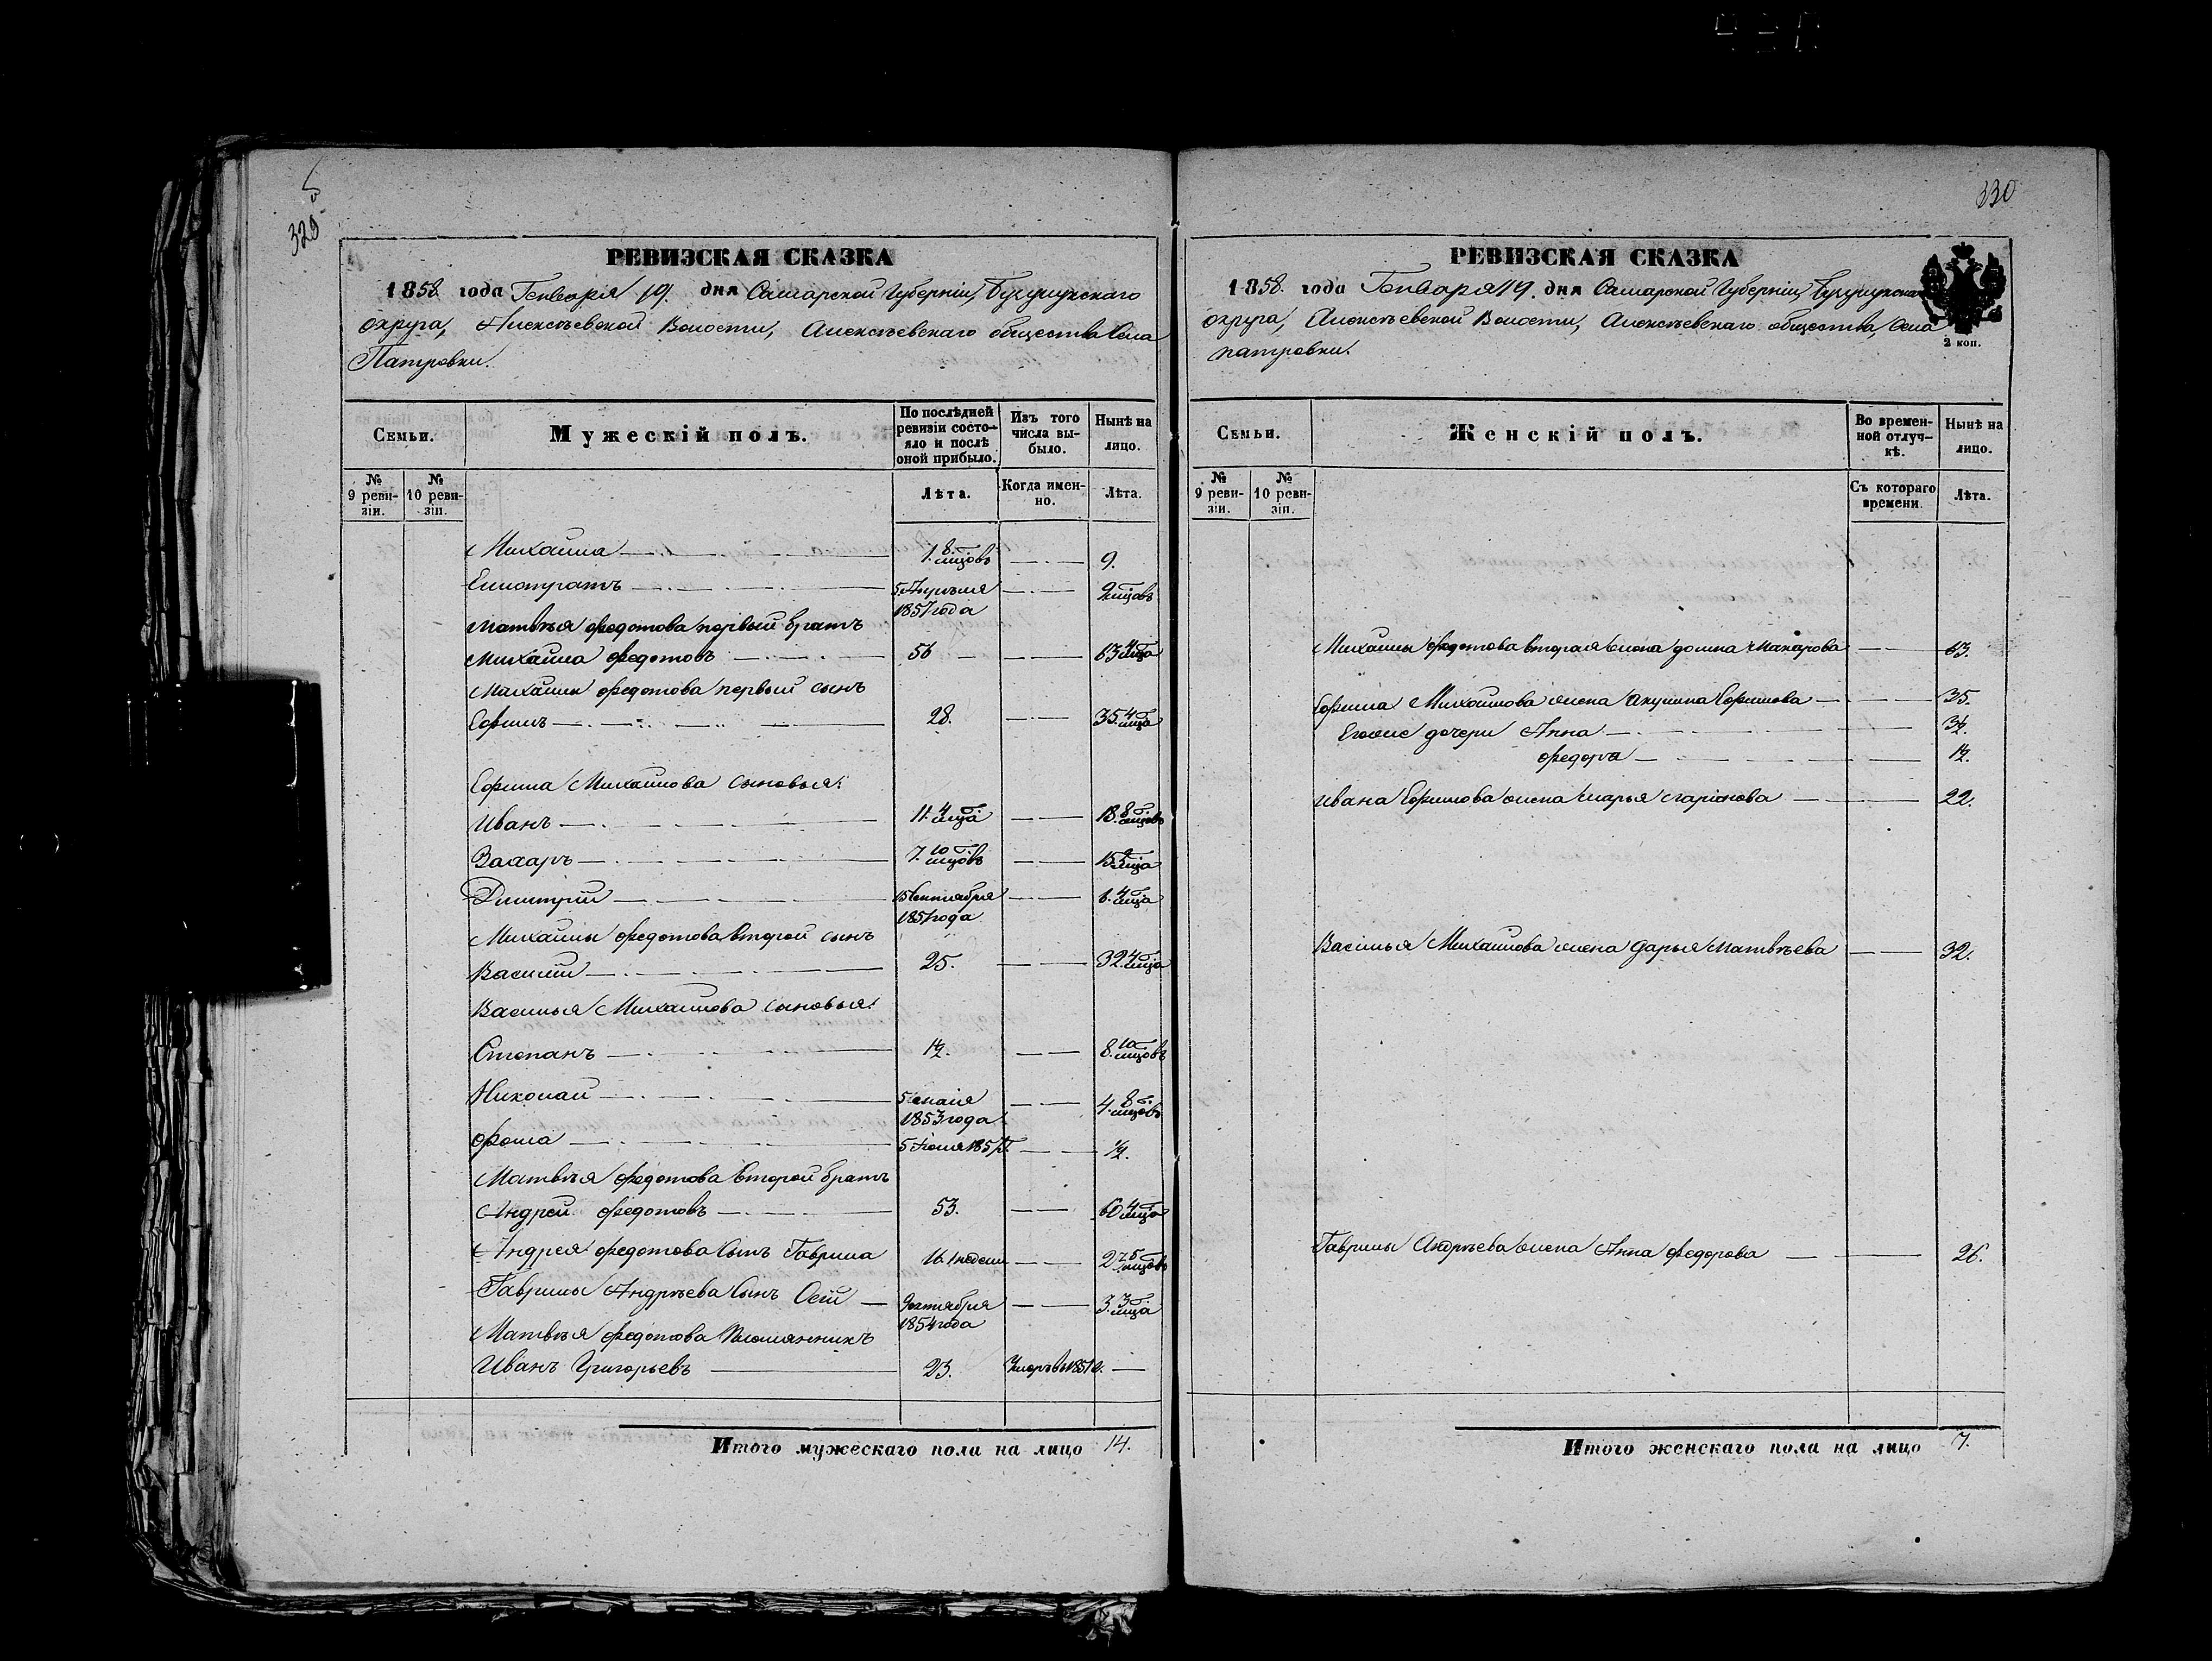 5
329
РЕВИЗСКАЯ СКАЗКА
1858 года Генваря 19. дня Самарской Губерніи, Бузулукскаго
округа, Алексѣевской Волости, Алексѣевскаго общества Села
Патровки.
Семьи.
Мужескій полъ.
По послѣдней ревизіи состояло и послѣ оной прибыло.
Изъ того числа выбыло.
Нынѣ на лицо.
№ 9 ревизіи.
№ 10 ревизіи.
Лѣта.
Когда именно.
Лѣта.
Михайла 1. 8 мцовъ 9.
Елистратъ 5 Апрѣля 1857 года 9 мцовъ
Матвѣя Федотова первый братъ
Михайла Федотовъ 56 63 4 мца
Михайлы Федотова первый сынъ
Ефимъ 28. 35. 4 мца
Ефима Михайлова сыновья:
Иванъ 11. 4 мца 18. 8 мцовъ
Захаръ 7. 10 мцовъ 15 2 мца
Димитрій 15 Сентября 1857 года 4 мца
Михайлы Федотова второй сынъ
Василій 25. 32. 4 мца
Василья Михайлова сыновья:
Степанъ 1½. 8. 10 мцовъ
Николай 5 маія 1853 года 4. 8 мцовъ
Фома 5 Іюля 1857 г. ½.
Матвѣя Федотова второй братъ
Андрей Федотовъ 53. 60 4 мца
Андрея Федотова Сынъ Гаврила 16. 1 недели 23 5 мцовъ
Гаврилы Андрѣева Сынъ Осій 9 октября 1854 года 3. 3 мца
Матвѣя Федотова Племянникъ
Иванъ Григорьевъ 23. Умеръ въ 1851 г.
Итого мужескаго пола на лицо 14.
330
РЕВИЗСКАЯ СКАЗКА
1858. года Генваря 19. дня Самарской Губерніи, Бузулукскаго
округа, Алексѣевской Волости, Алексѣевскаго общества, Села
патровки.
2 коп.
Семьи.
Женскій полъ.
Во временной отлучкѣ.
Нынѣ на лицо.
№ 9 ревизіи.
№ 10 ревизіи.
Съ котораго времени.
Лѣта.
Михайлы Федотова вторая жена домна Макарова 63.
Ефима Михайлова жена Акулина Ефимова 35.
Егоже дочери Анна 3½.
Федора 1½.
Ивана Ефимова жена марья Ларіонова 22.
Василья Михайлова жена Дарья Матвѣева 32.
Гаврилы Андрѣева жена Анна Федорова 26.
Итого женскаго пола на лицо 7.